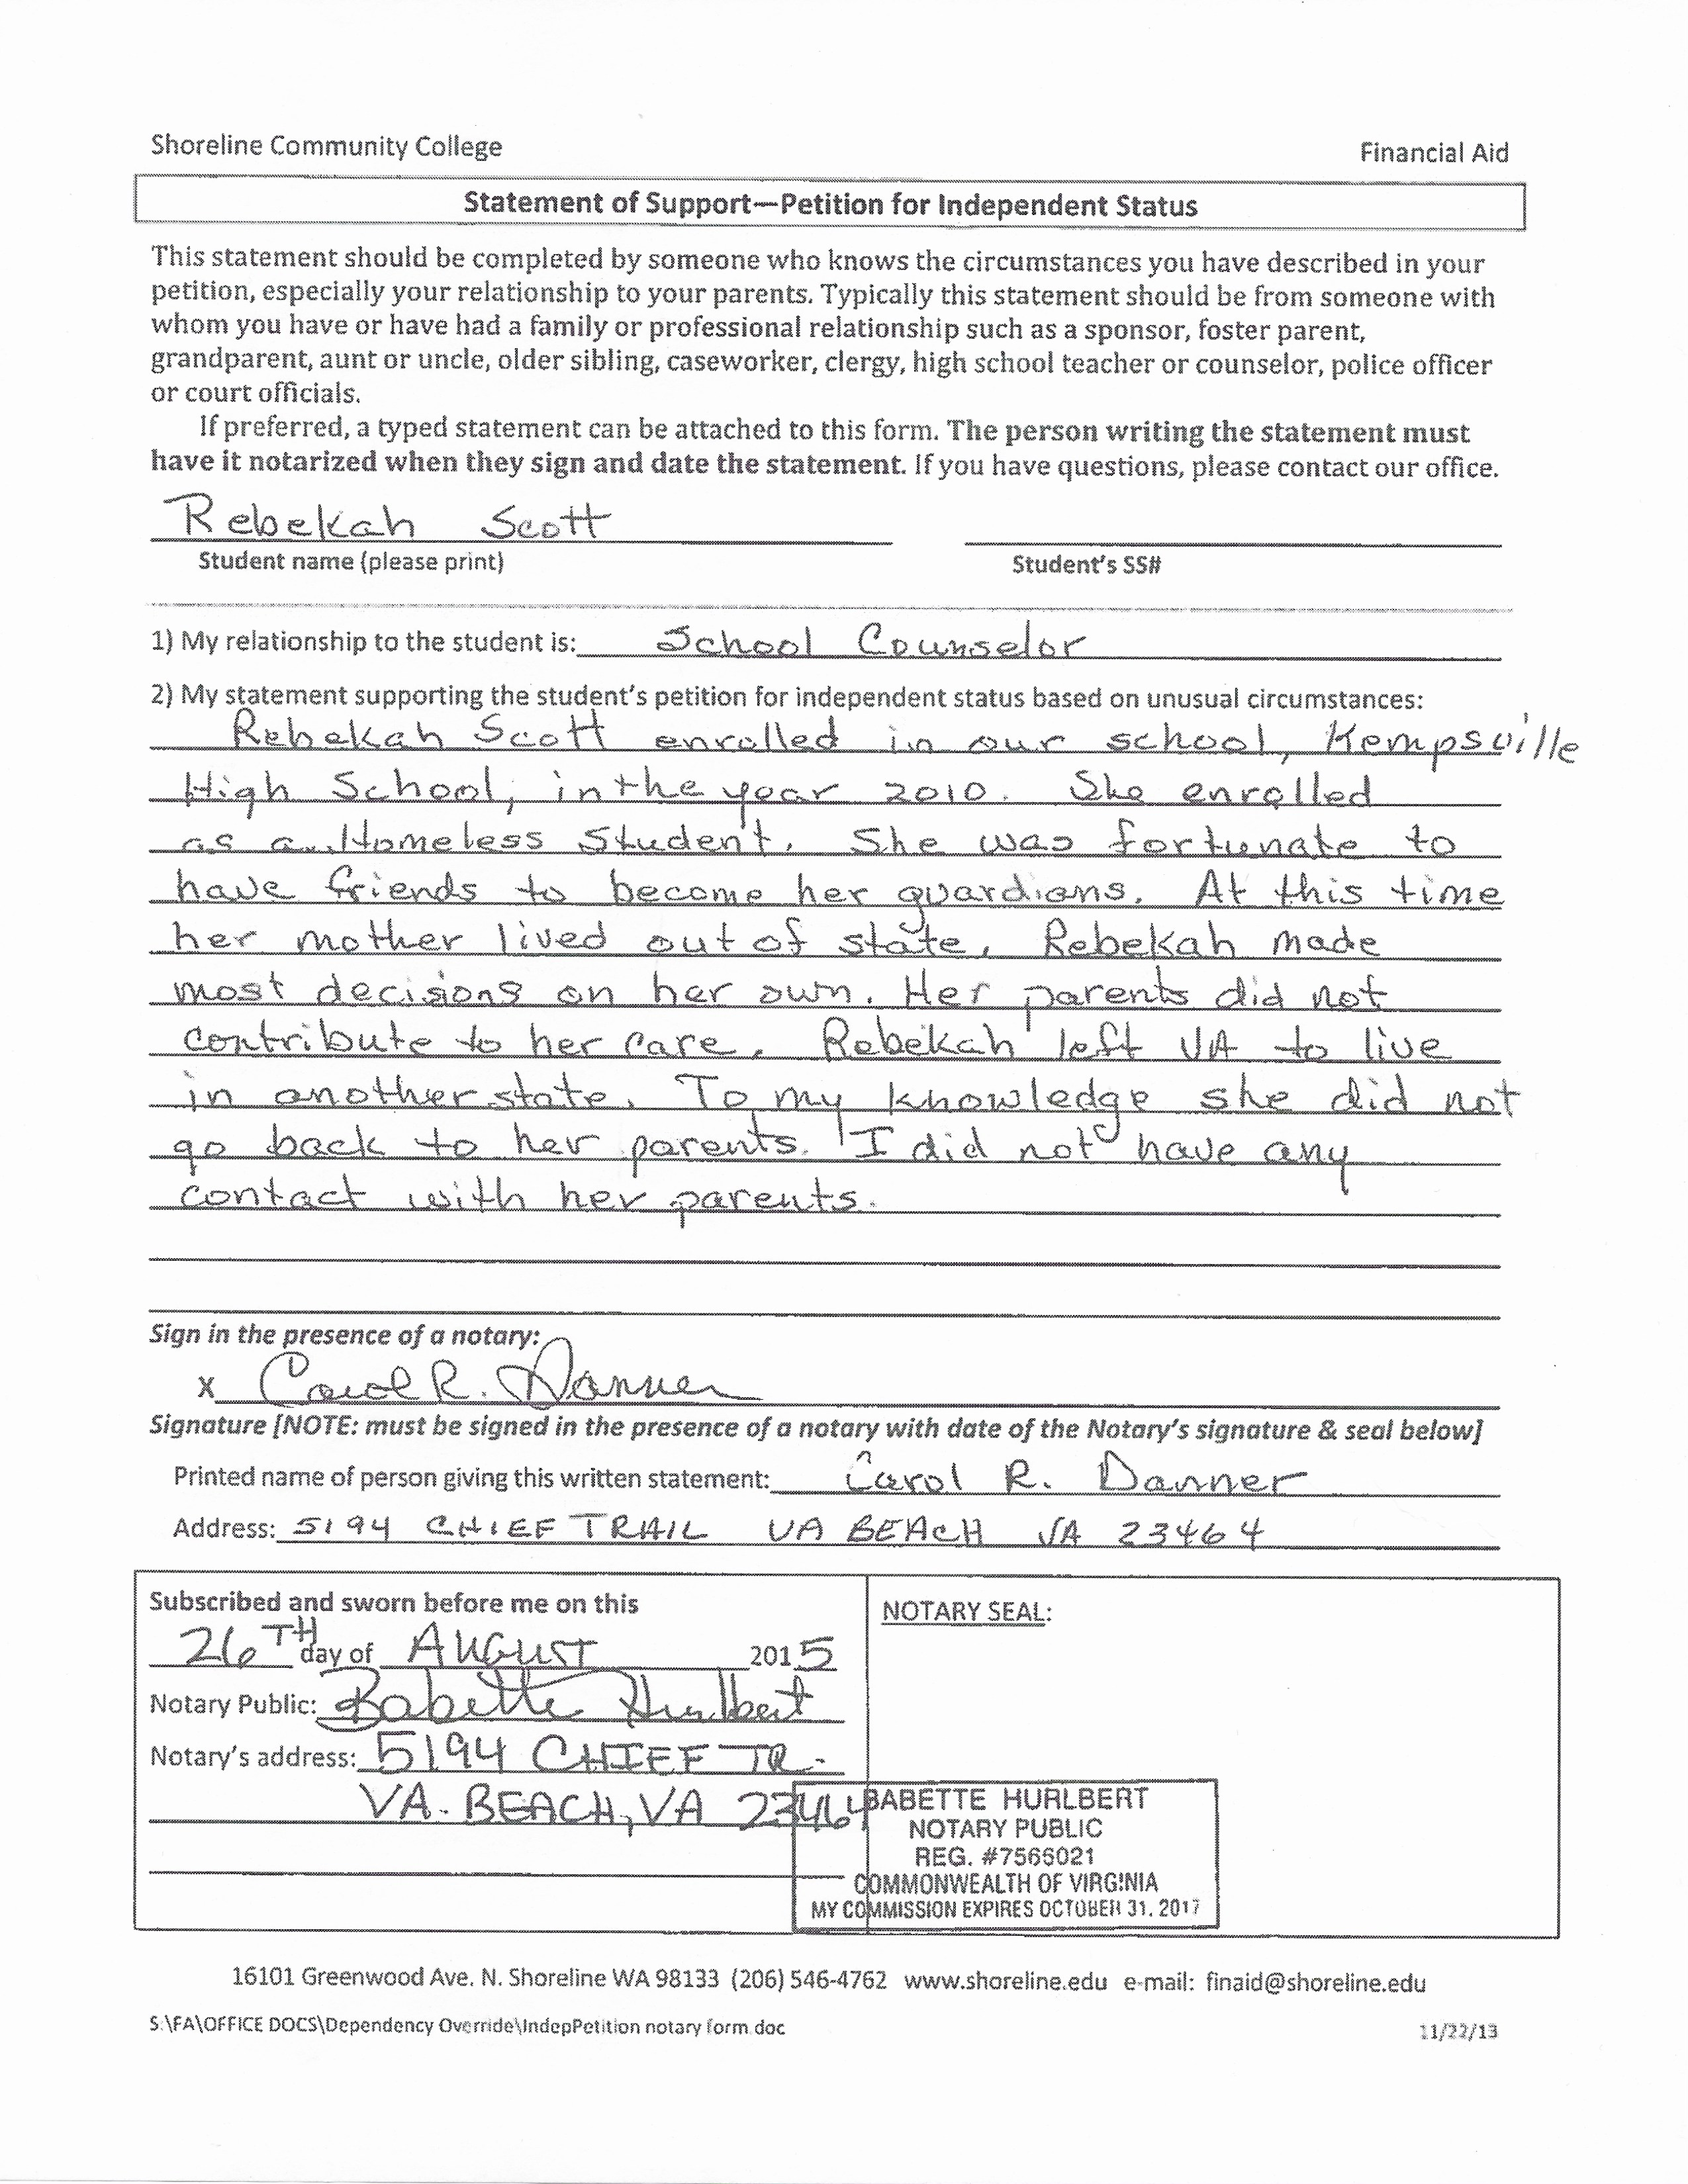 Shoreline Community College
Financial Aid
Statement of Support—Petition for Independent Status
This statement should be completed by someone who knows the circumstances you have described in your
petition, especially your relationship to your parents. Typically this statement should be from someone with
whom you have or have had a family or professional relationship such as a sponsor, foster parent,
grandparent, aunt or uncle, older sibling, caseworker, clergy, high school teacher or counselor, police officer
or court officials.
If preferred, a typed statement can be attached to this form. The person writing the statement must
have it notarized when they sign and date the statement. If you have questions, please contact our office.
Rebekah Scott
Student name (please print)
Student's SS#
1) My relationship to the student is: School Counselor
2) My statement supporting the student's petition for independent status based on unusual circumstances:
Rebekah Scott enrolled in our school, Kempsville
High School, in the year 2010. She enrolled
as a Homeless Student. She was fortunate to
have friends to become her guardians. At this time
her mother lived out of state, Rebekah made
most decisions on her own. Her parents did not
contribute to her care. Rebekah left VA to live
in another state. To my knowledge she did not
go back to her parents. I did not have any
contact with her parents.
Sign in the presence of a notary:
x Carol R. Danner
Signature [NOTE: must be signed in the presence of a notary with date of the Notary's signature & seal below]
Printed name of person giving this written statement: Carol R. Danner
Address: 5194 CHIEF TRAIL VA BEACH VA 23464
Subscribed and sworn before me on this
26TH day of AUGUST 2015
Notary Public: Babette Hurlbert
Notary's address: 5194 CHIEF TR.
VA. BEACH, VA 23464
NOTARY SEAL:
BABETTE HURLBERT
NOTARY PUBLIC
REG. #7566021
COMMONWEALTH OF VIRGINIA
MY COMMISSION EXPIRES OCTOBER 31, 2017
16101 Greenwood Ave. N. Shoreline WA 98133 (206) 546-4762 www.shoreline.edu e-mail: finaid@shoreline.edu
S:\FA\OFFICE DOCS\Dependency Override\IndepPetition notary form.doc
11/22/13